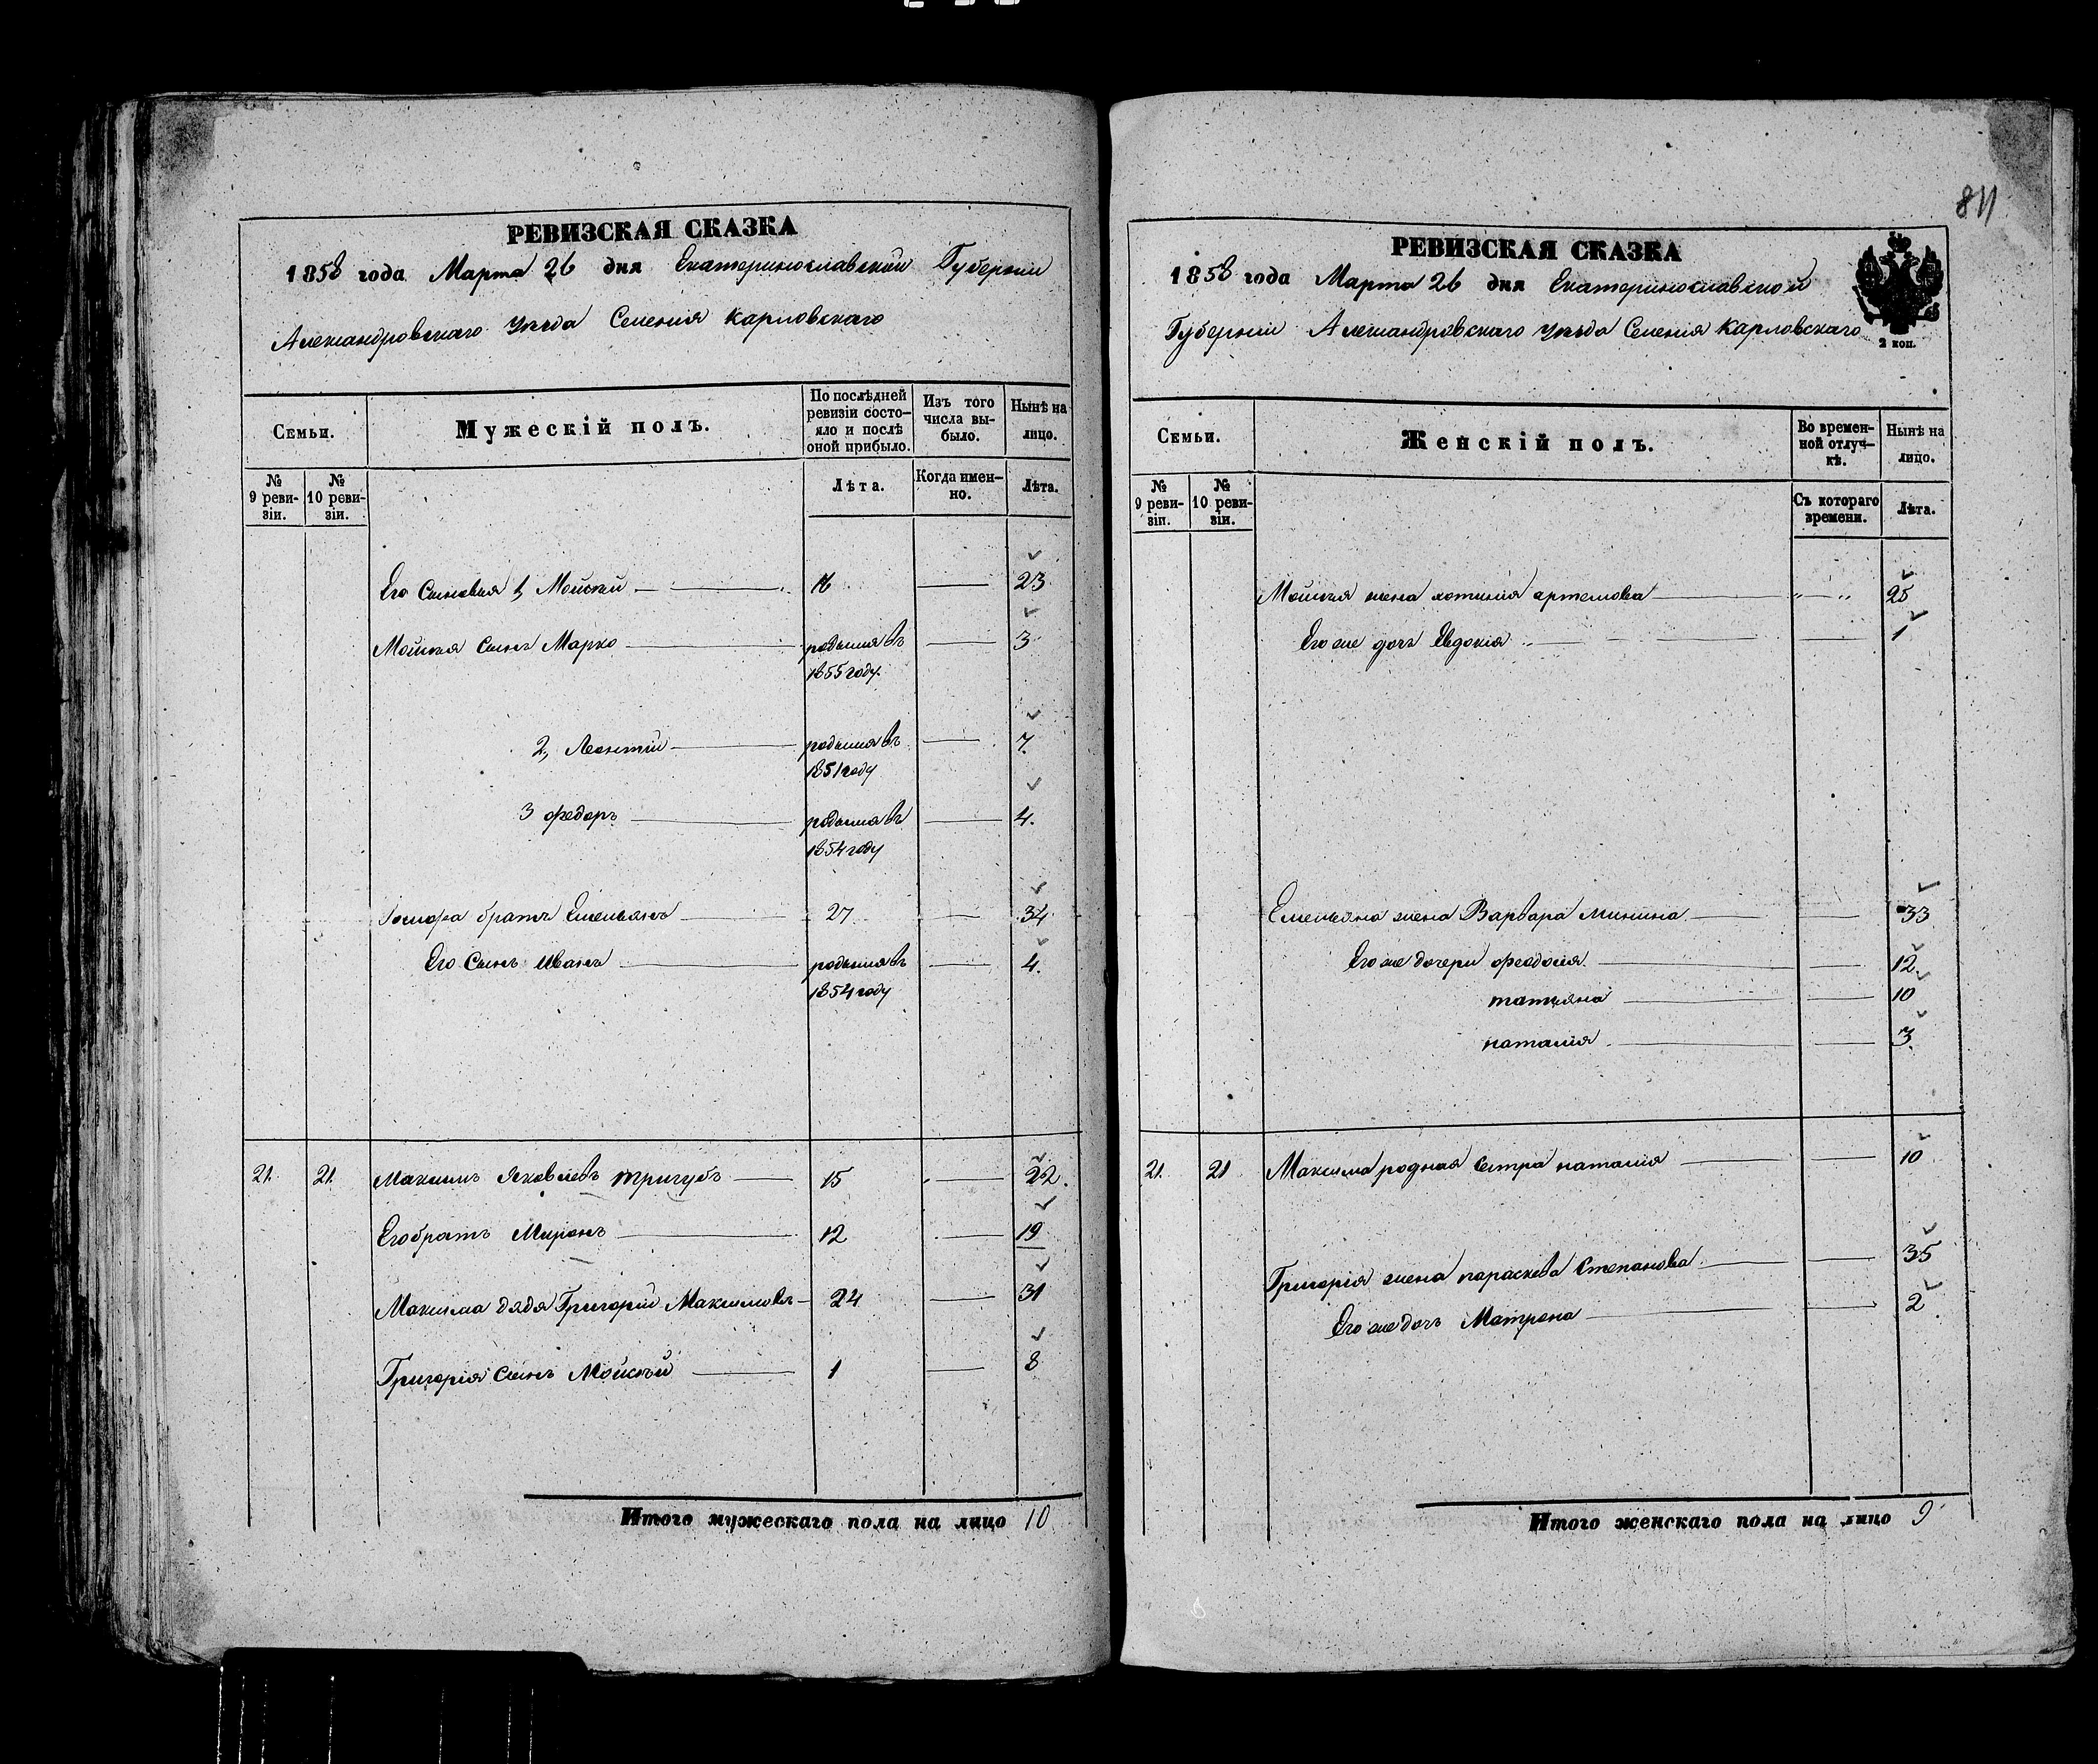 РЕВИЗСКАЯ СКАЗКА
1858 года Марта 26 дня Екатеринославской Губернии
Александровского уезда Селения Карловского
Семьи.
Мужескій полъ.
По послѣдней ревизіи состо-яло и послѣ оной прибыло.
Изъ того числа вы-было.
Нынѣ на лицо.
№ 9 реви-зіи.
№ 10 реви-зіи.
Лѣта.
Когда имен-но.
Лѣта.
Его Сыновья 1, Мойсей 16 23
Мойсея Сынъ Марко родился въ 3
1855 году.
2, Леонтій родился въ 7.
1851 году
3 Федоръ родился въ 4.
1854 году
братъ Емельянъ 27 34
Его Сынъ Иванъ родился въ 4.
1854 году
21. 21. Максимъ Яковлевъ Тригубъ 15 22.
Его братъ Миронъ 12 19
Максима дядя Григорій Максимовъ 24 31
Григорія Сынъ Мойсей 1 8
Итого мужескаго пола на лицо 10
811
РЕВИЗСКАЯ СКАЗКА
1858 года Марта 26 дня Екатеринославской
Губернии Александровского уезда Селения Карловского
2 коп.
Семьи.
Женскій полъ.
Во времен-ной отлуч-кѣ.
Нынѣ на лицо.
№ 9 реви-зіи.
№ 10 реви-зіи.
Съ котораго времени.
Лѣта.
Мойсея жена хотинія артемова " " 25
Его же дочь Евдокія 1
Емельяна жена Варвара Минина 33
Его же дочери феодосія 12.
татіяна 10
наталія 3.
21. 21 Максима родная сестра наталія 10
Григорія жена параскева Степанова 35
Его же дочь Матрена 2
Итого женскаго пола на лицо 9